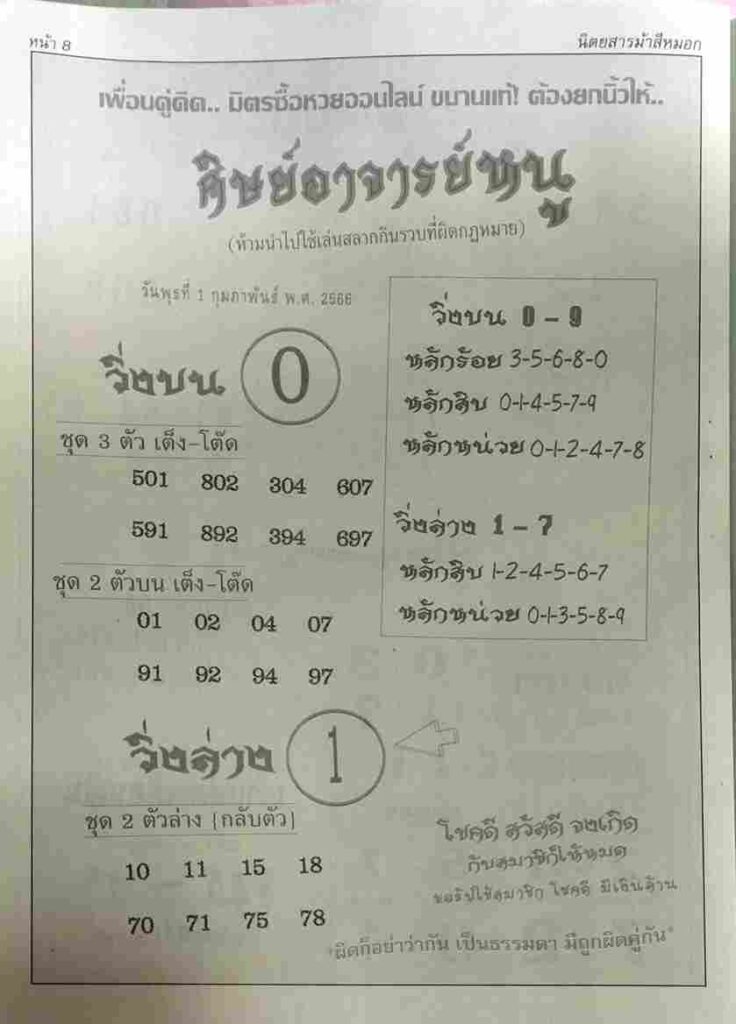 หน้า 8
นิตยสารม้าสีหมอก
เพื่อนคู่คิด.. มิตรซื้อหวยออนไลน์ ขนานแท้! ต้องยกนิ้วให้..
ศิษย์อาจารย์หนู
(ห้ามนำไปใช้เล่นสลากกินรวบที่ผิดกฎหมาย)
วันพุธที่ 1 กุมภาพันธ์ พ.ศ. 2566
วิ่งบน 0
ชุด 3 ตัว เต็ง-โต๊ด
501 802 304 607
591 892 394 697
ชุด 2 ตัวบน เต็ง-โต๊ด
01 02 04 07
91 92 94 97
วิ่งบน 0 - 9
หลักร้อย 3-5-6-8-0
หลักสิบ 0-1-4-5-7-9
หลักหน่วย 0-1-2-4-7-8
วิ่งล่าง 1 - 7
หลักสิบ 1-2-4-5-6-7
หลักหน่วย 0-1-3-5-8-9
วิ่งล่าง 1
ชุด 2 ตัวล่าง (กลับตัว)
10 11 15 18
70 71 75 78
โชคดี สวัสดี จงเกิด
กับสมาชิกให้หมด
ขอให้สมาชิก โชคดี มีเงินล้าน
"ผิดก็อย่าว่ากัน เป็นธรรมดา มีถูกผิดคู่กัน"